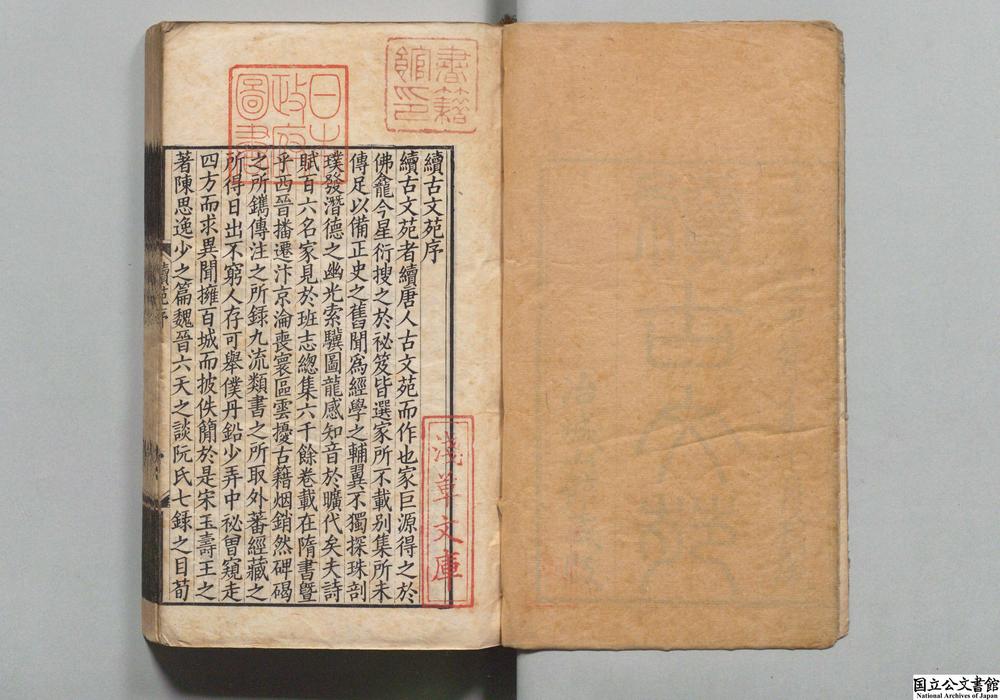 續古文苑序
續古文苑者續唐人古文苑而作也家巨源得之於
佛龕今星衍搜之於祕笈皆選家所不載別集所未
傳足以備正史之舊聞為經學之輔翼不獨探珠剖
璞發潛德之幽光索驥圖龍感知音於曠代矣夫詩
賦百六名家見於班志總集六千餘卷載在隋書曁
乎西晉播遷汴京淪喪寰區雲擾古籍烟銷然碑碣
之所鐫傳注之所録九流類書之所取外蕃經藏之
所得日出不窮人存可舉僕丹鉛少弄中祕曽窺走
四方而求異聞擁百城而披佚簡於是宋玉壽王之
著陳思逸少之篇魏晉六天之談阮氏七録之目荀
續苑序
書籍館印
日本政府圖書
淺草文庫
國立公文書館
National Archives of Japan